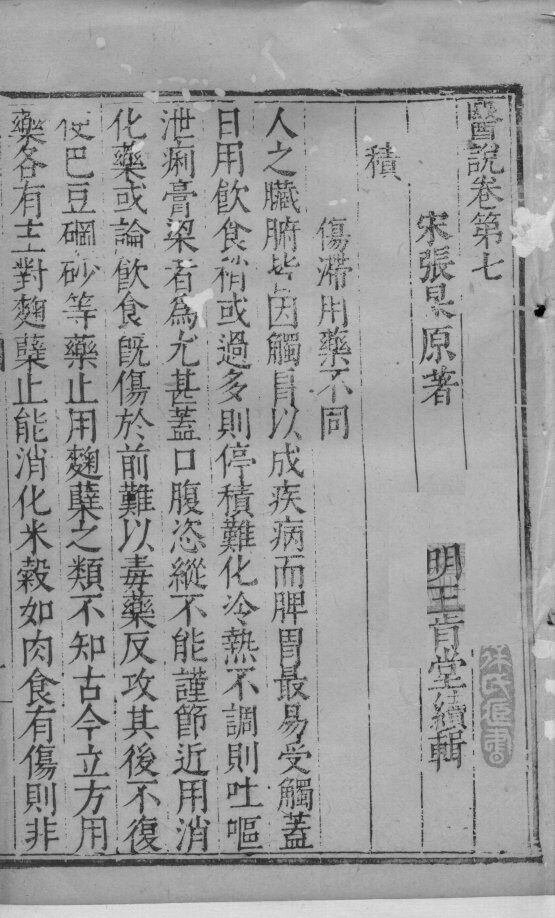 醫說卷第七
宋張杲原著
明王肯堂續輯
積
傷滯用藥不同
人之臟腑皆因觸冒以成疾病而脾胃最易受觸蓋
日用飲食稍或過多則停積難化冷熱不調則吐嘔
泄痢膏粱者為尤甚蓋口腹恣縱不能謹節近用消
化藥或論飲食既傷於前難以毒藥反攻其後不復
使巴豆硇砂等藥止用麴蘗之類不知古今立方用
藥各有主對麴蘗止能消化米穀如肉食有傷則非